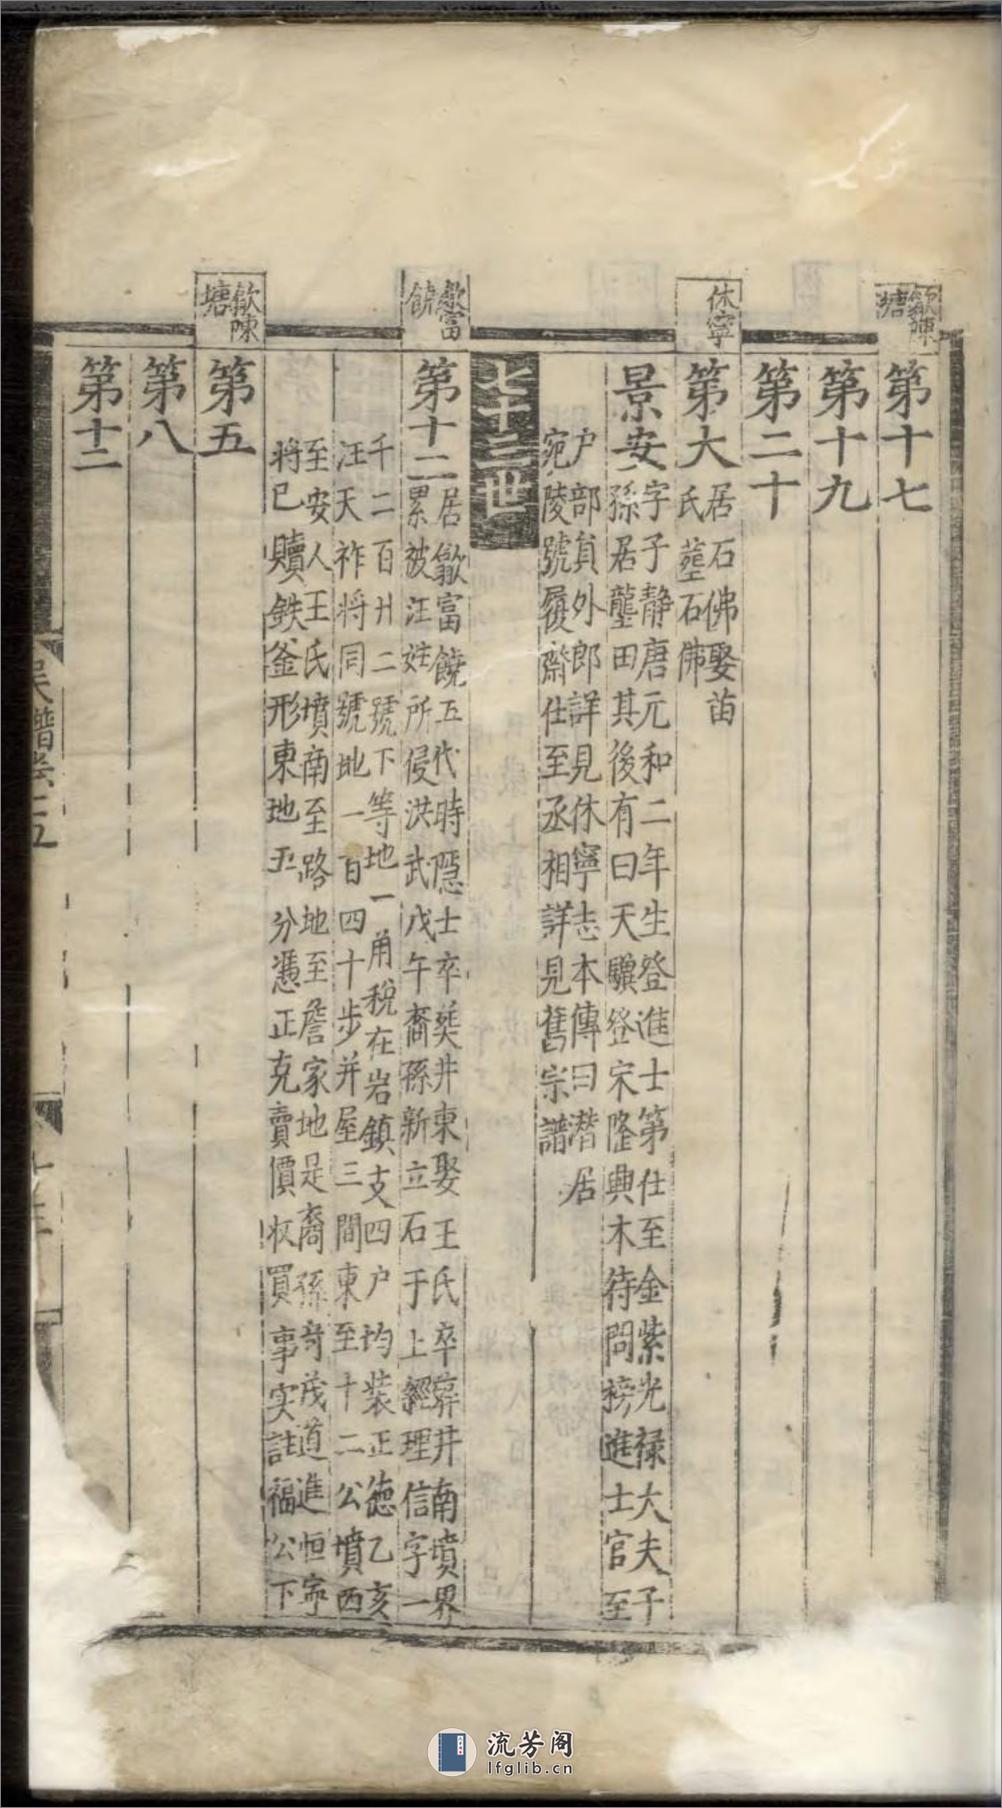 歙陳塘
第十七
第十九
第二十
休寧
第大
居石佛娶苗
氏塟石佛
景安
字子静唐元和二年生登進士第仕至金紫光禄大夫子
孫居龍田其後有曰天驥登宋隆興木待問榜進士官至
户部貟外郎詳見休寧志本傳曰潛居
宛陵號履齋仕至丞相詳見舊宗譜
七十三世
歙富饒
第十二
居歙富饒五代時隱士卒塟井東娶王氏卒塟井南墳界
累被汪姓所侵洪武戊午裔孫新立石于上經理信字一
千二百廿二號下等地一角税在岩鎮支四户均装正德乙亥
汪天祚将同號地一百四十步并屋三間東至十二公墳西
至安人王氏墳南至路地至詹家地是裔孫竒茂道進恒寧
将已贖鉄釜形東地五分憑正克賣價收買事实註福公下
歙陳塘
第五
第八
第十二
吴譜
流芳阁
lfglib.cn